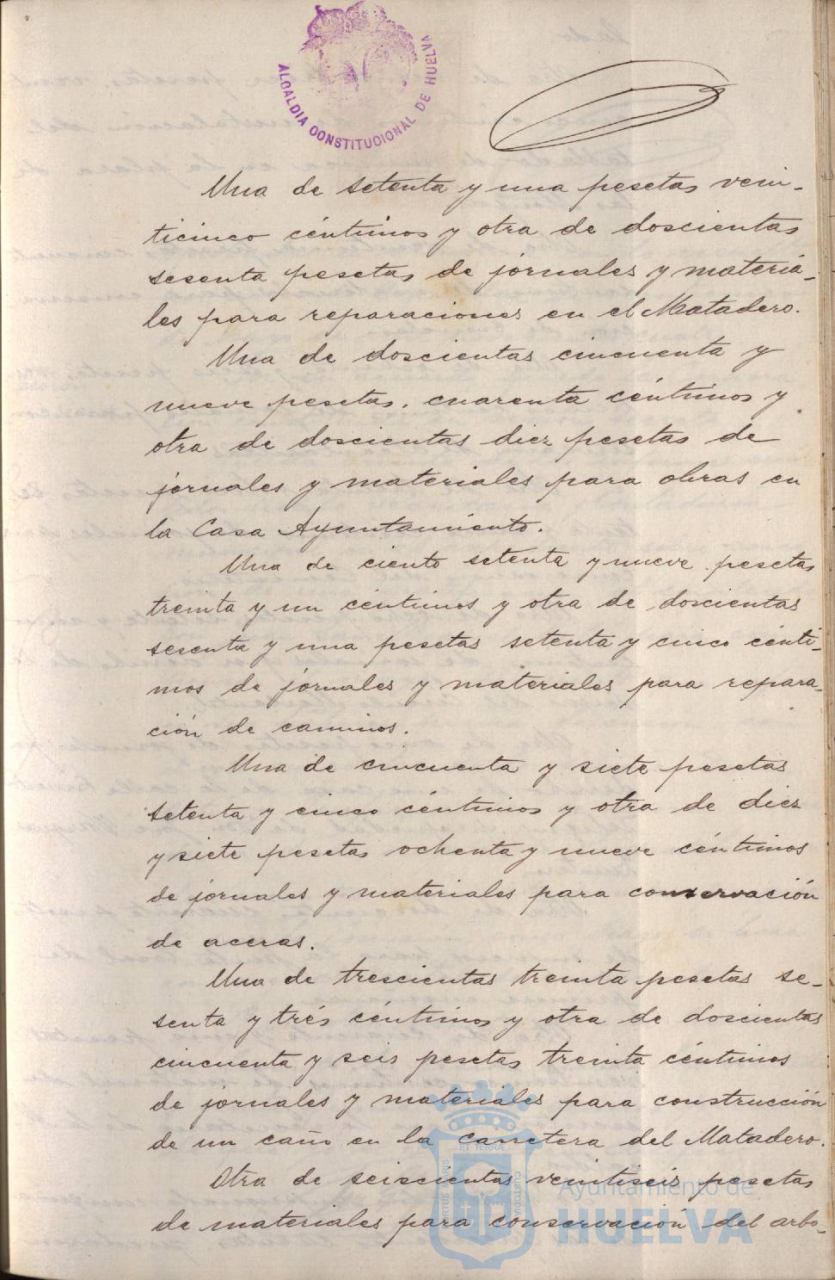 ALCALDIA CONSTITUCIONAL DE HUELVA
Una de setenta y una pesetas vein-
ticinco céntimos y otra de doscientas
sesenta pesetas de jornales y materia-
les para reparaciones en el Matadero.
Una de doscientas cincuenta y
nueve pesetas cuarenta céntimos y
otra de doscientas diez pesetas de
jornales y materiales para obras en
la Casa Ayuntamiento.
Una de ciento setenta y nueve pesetas
treinta y un céntimos y otra de doscientas
sesenta y una pesetas setenta y cinco cénti-
mos de jornales y materiales para repara-
ción de caminos.
Una de cincuenta y siete pesetas
setenta y cinco céntimos y otra de diez
y siete pesetas ochenta y nueve céntimos
de jornales y materiales para conservación
de aceras.
Una de trescientas treinta pesetas se-
senta y trés céntimos y otra de doscientas
cincuenta y seis pesetas treinta céntimos
de jornales y materiales para construcción
de un caño en la carretera del Matadero.
Otra de seiscientas veintiseis pesetas
de materiales para conservación del arbo-
Ayuntamiento de
HUELVA